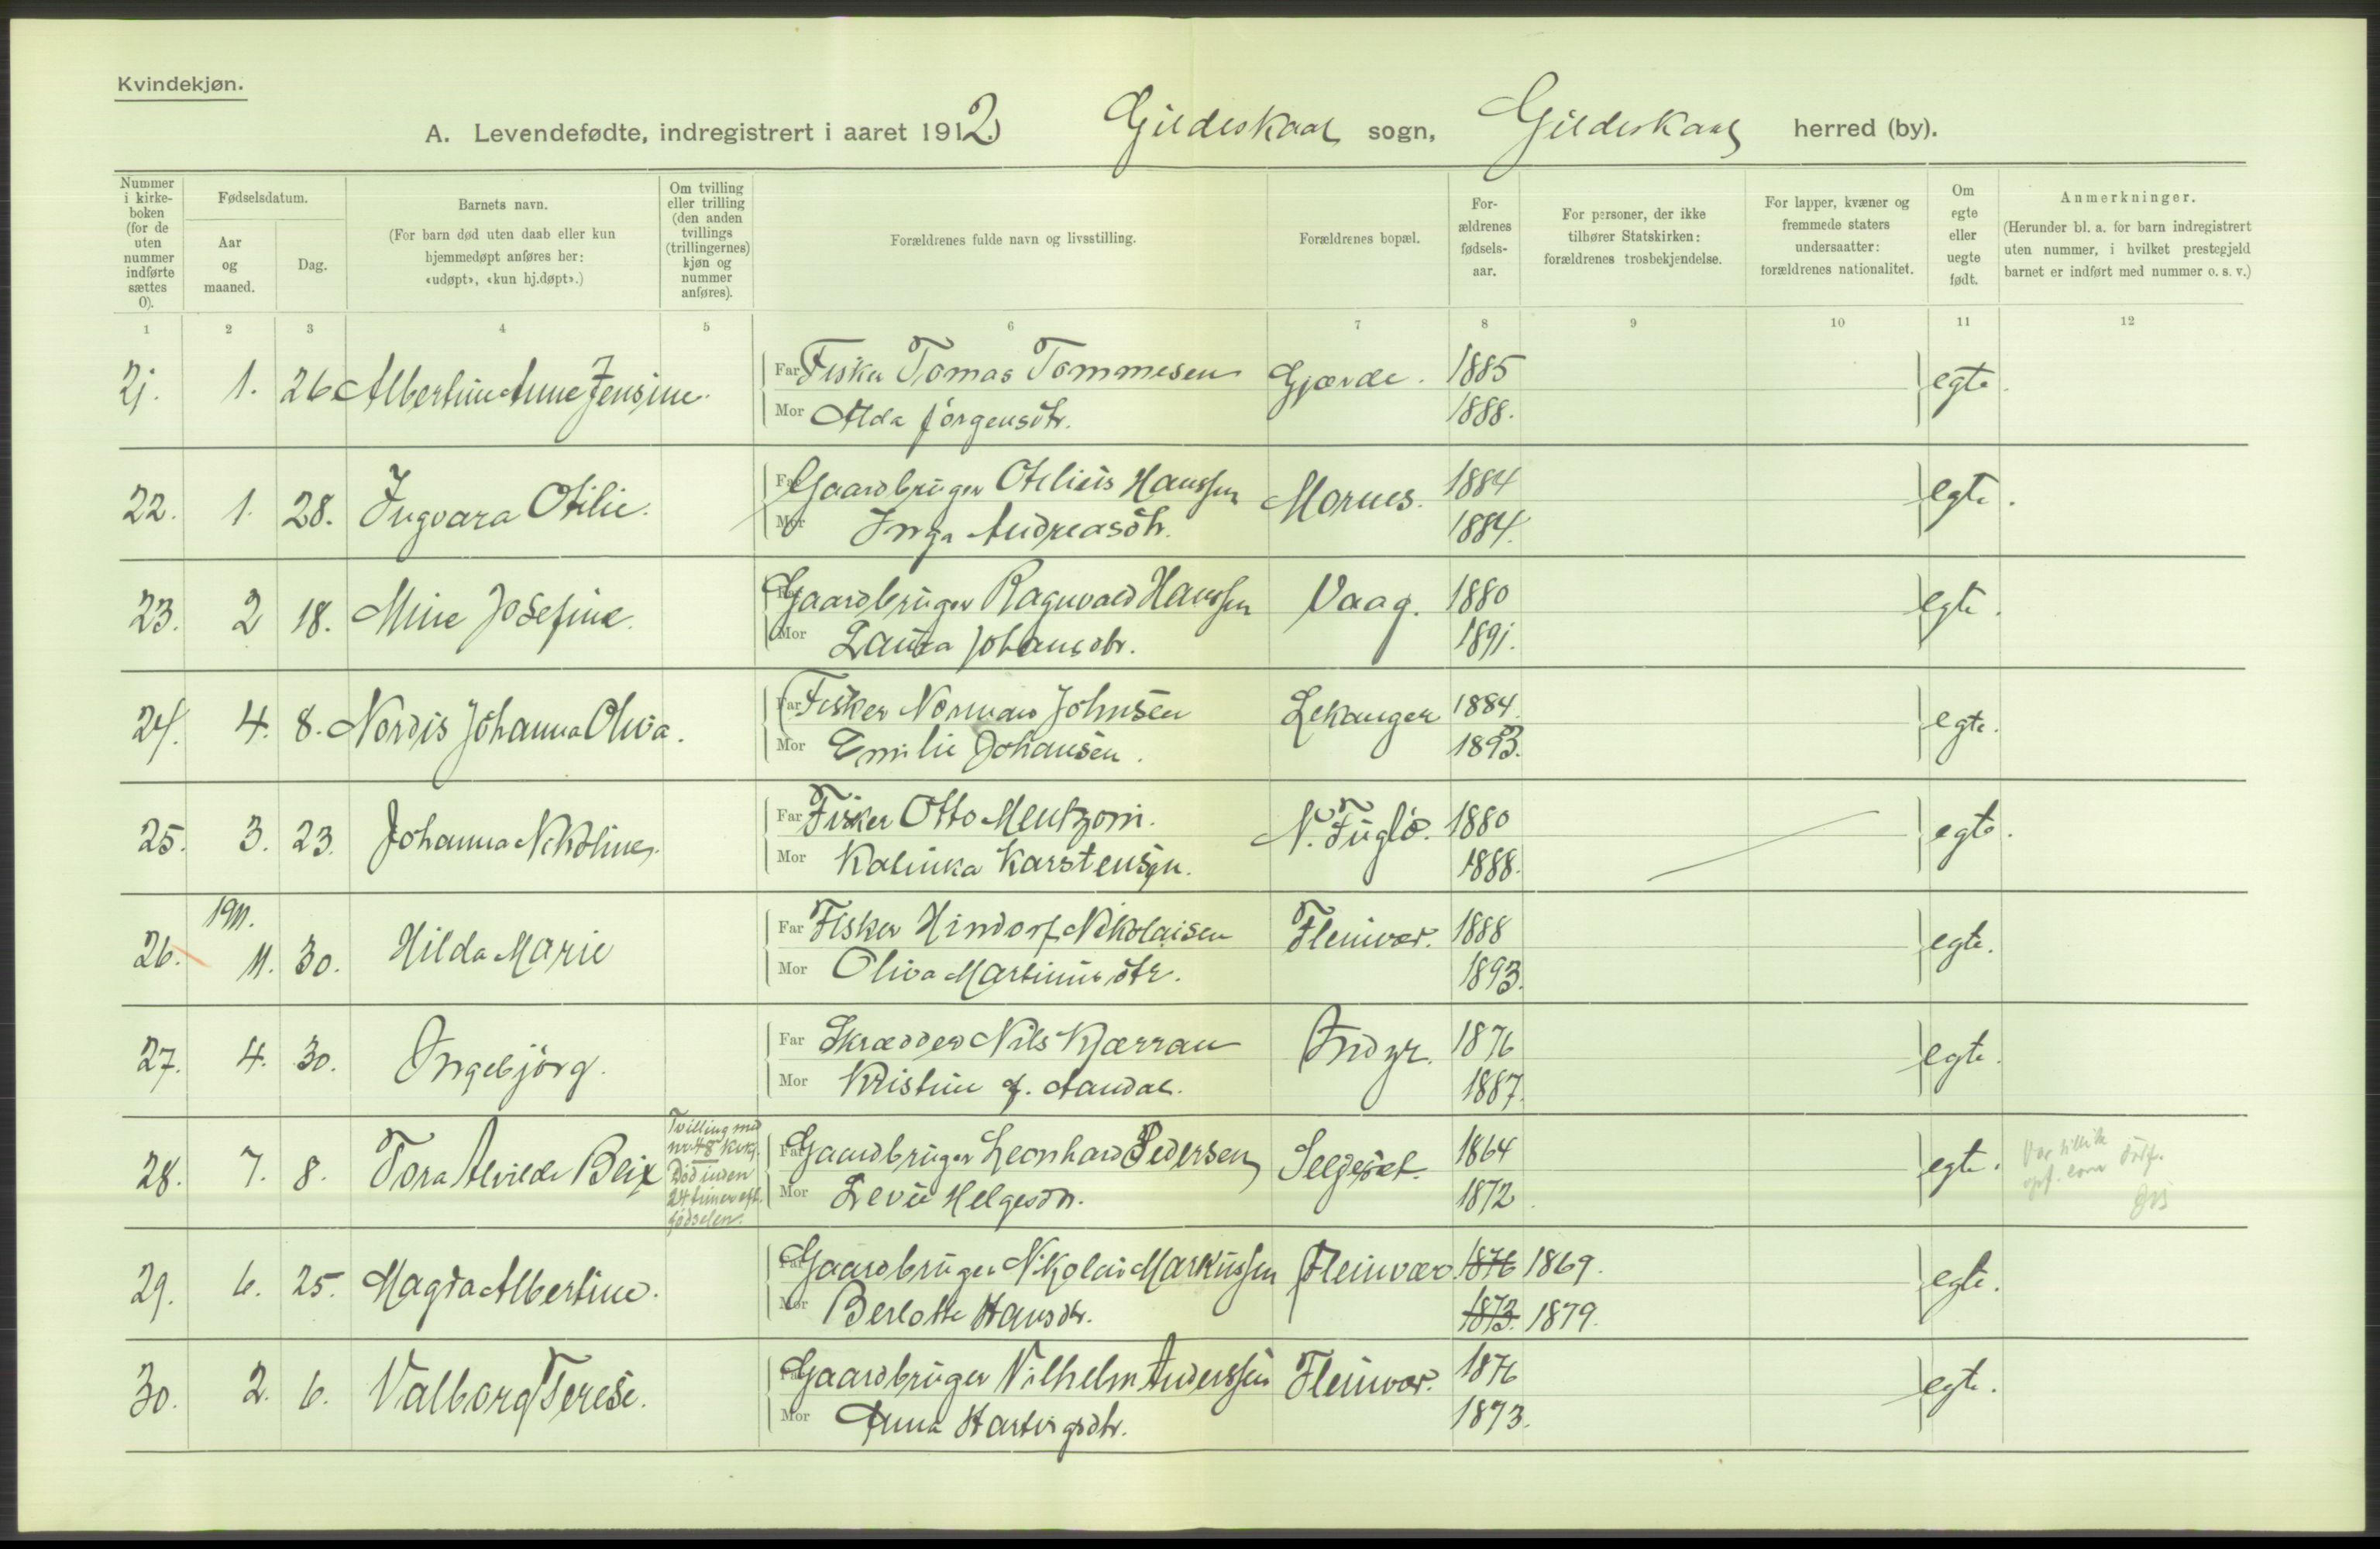 Kvindekjøn.
A. Levendefødte, indregistrert i aaret 1912. Gildeskaal sogn, Gildeskaal herred (by).
Nummer i kirkeboken (for de uten nummer indførte sættes 0).
Fødselsdatum.
Aar og maaned.
Dag.
Barnets navn.
(For barn død uten daab eller kun hjemmedøpt anføres her: «udøpt», «kun hj.døpt».)
Om tvilling eller trilling (den anden tvillings (trillingernes) kjøn og nummer anføres).
Forældrenes fulde navn og livsstilling.
Forældrenes bopæl.
Forældrenes fødselsaar.
For personer, der ikke tilhører Statskirken: forældrenes trosbekjendelse.
For lapper, kvæner og fremmede staters undersaatter: forældrenes nationalitet.
Om egte eller uegte født.
Anmerkninger.
(Herunder bl. a. for barn indregistrert uten nummer, i hvilket prestegjeld barnet er indført med nummer o. s. v.)
1 2 3 4 5 6 7 8 9 10 11 12
21. 1. 26 Albertine Anne Jensine. Far Fisker Tomas Tommesen Gjærde. 1885 egte.
Mor Alda Jørgensdtr. 1888.
22. 1. 28. Ingvara Otilie. Far Gaardbruger Otelius Hanssen Mornes. 1884 egte.
Mor Inga Andreasdtr. 1884.
23. 2 18. Mine Josefine. Gaardbruger Ragnvald Hanssen Vaag. 1880 egte.
Mor Laura Johansdtr. 1891.
24. 4. 8. Nordis Johanna Oliva. Far Fisker Normann Johnsen Lekanger 1884. egte.
Mor Emilie Johansen. 1893.
25. 3. 23. Johanna Nikoline. Far Fisker Otto Mentzoni. N. Fuglø. 1880 egte.
Mor Kalinka Karstensen. 1888.
1911.
26. 11. 30. Hilda Marie Far Fisker Hindorf Nikolaisen Fleinvær. 1888 egte.
Mor Oliva Martinusdtr. 1893.
27. 4. 30. Ingebjørg. Far Skrædder Nils Kjærran Indyr. 1876 egte.
Mor Kristine f. Aandal. 1887.
Tvilling med nr. 48 kvkj. Død inden 24 timer eft. fødselen.
28. 7. 8. Tora Alvilde Blix Far Gaardbruger Leonhard Pedersen Selgeset. 1864 egte.
Mor Levie Helgesdtr. 1872.
29. 6. 25. Magda Albertine. Far Gaardbruger Nikolai Markussen Fleinvær 1876 1869. egte.
Mor Berlotte Hansdtr. 1873. 1879.
30. 2. 6. Valborg Terese. Far Gaardbruger Vilhelm Anderssen Fleinvær. 1876 egte.
Mor Anna Hartvigsdtr. 1873.